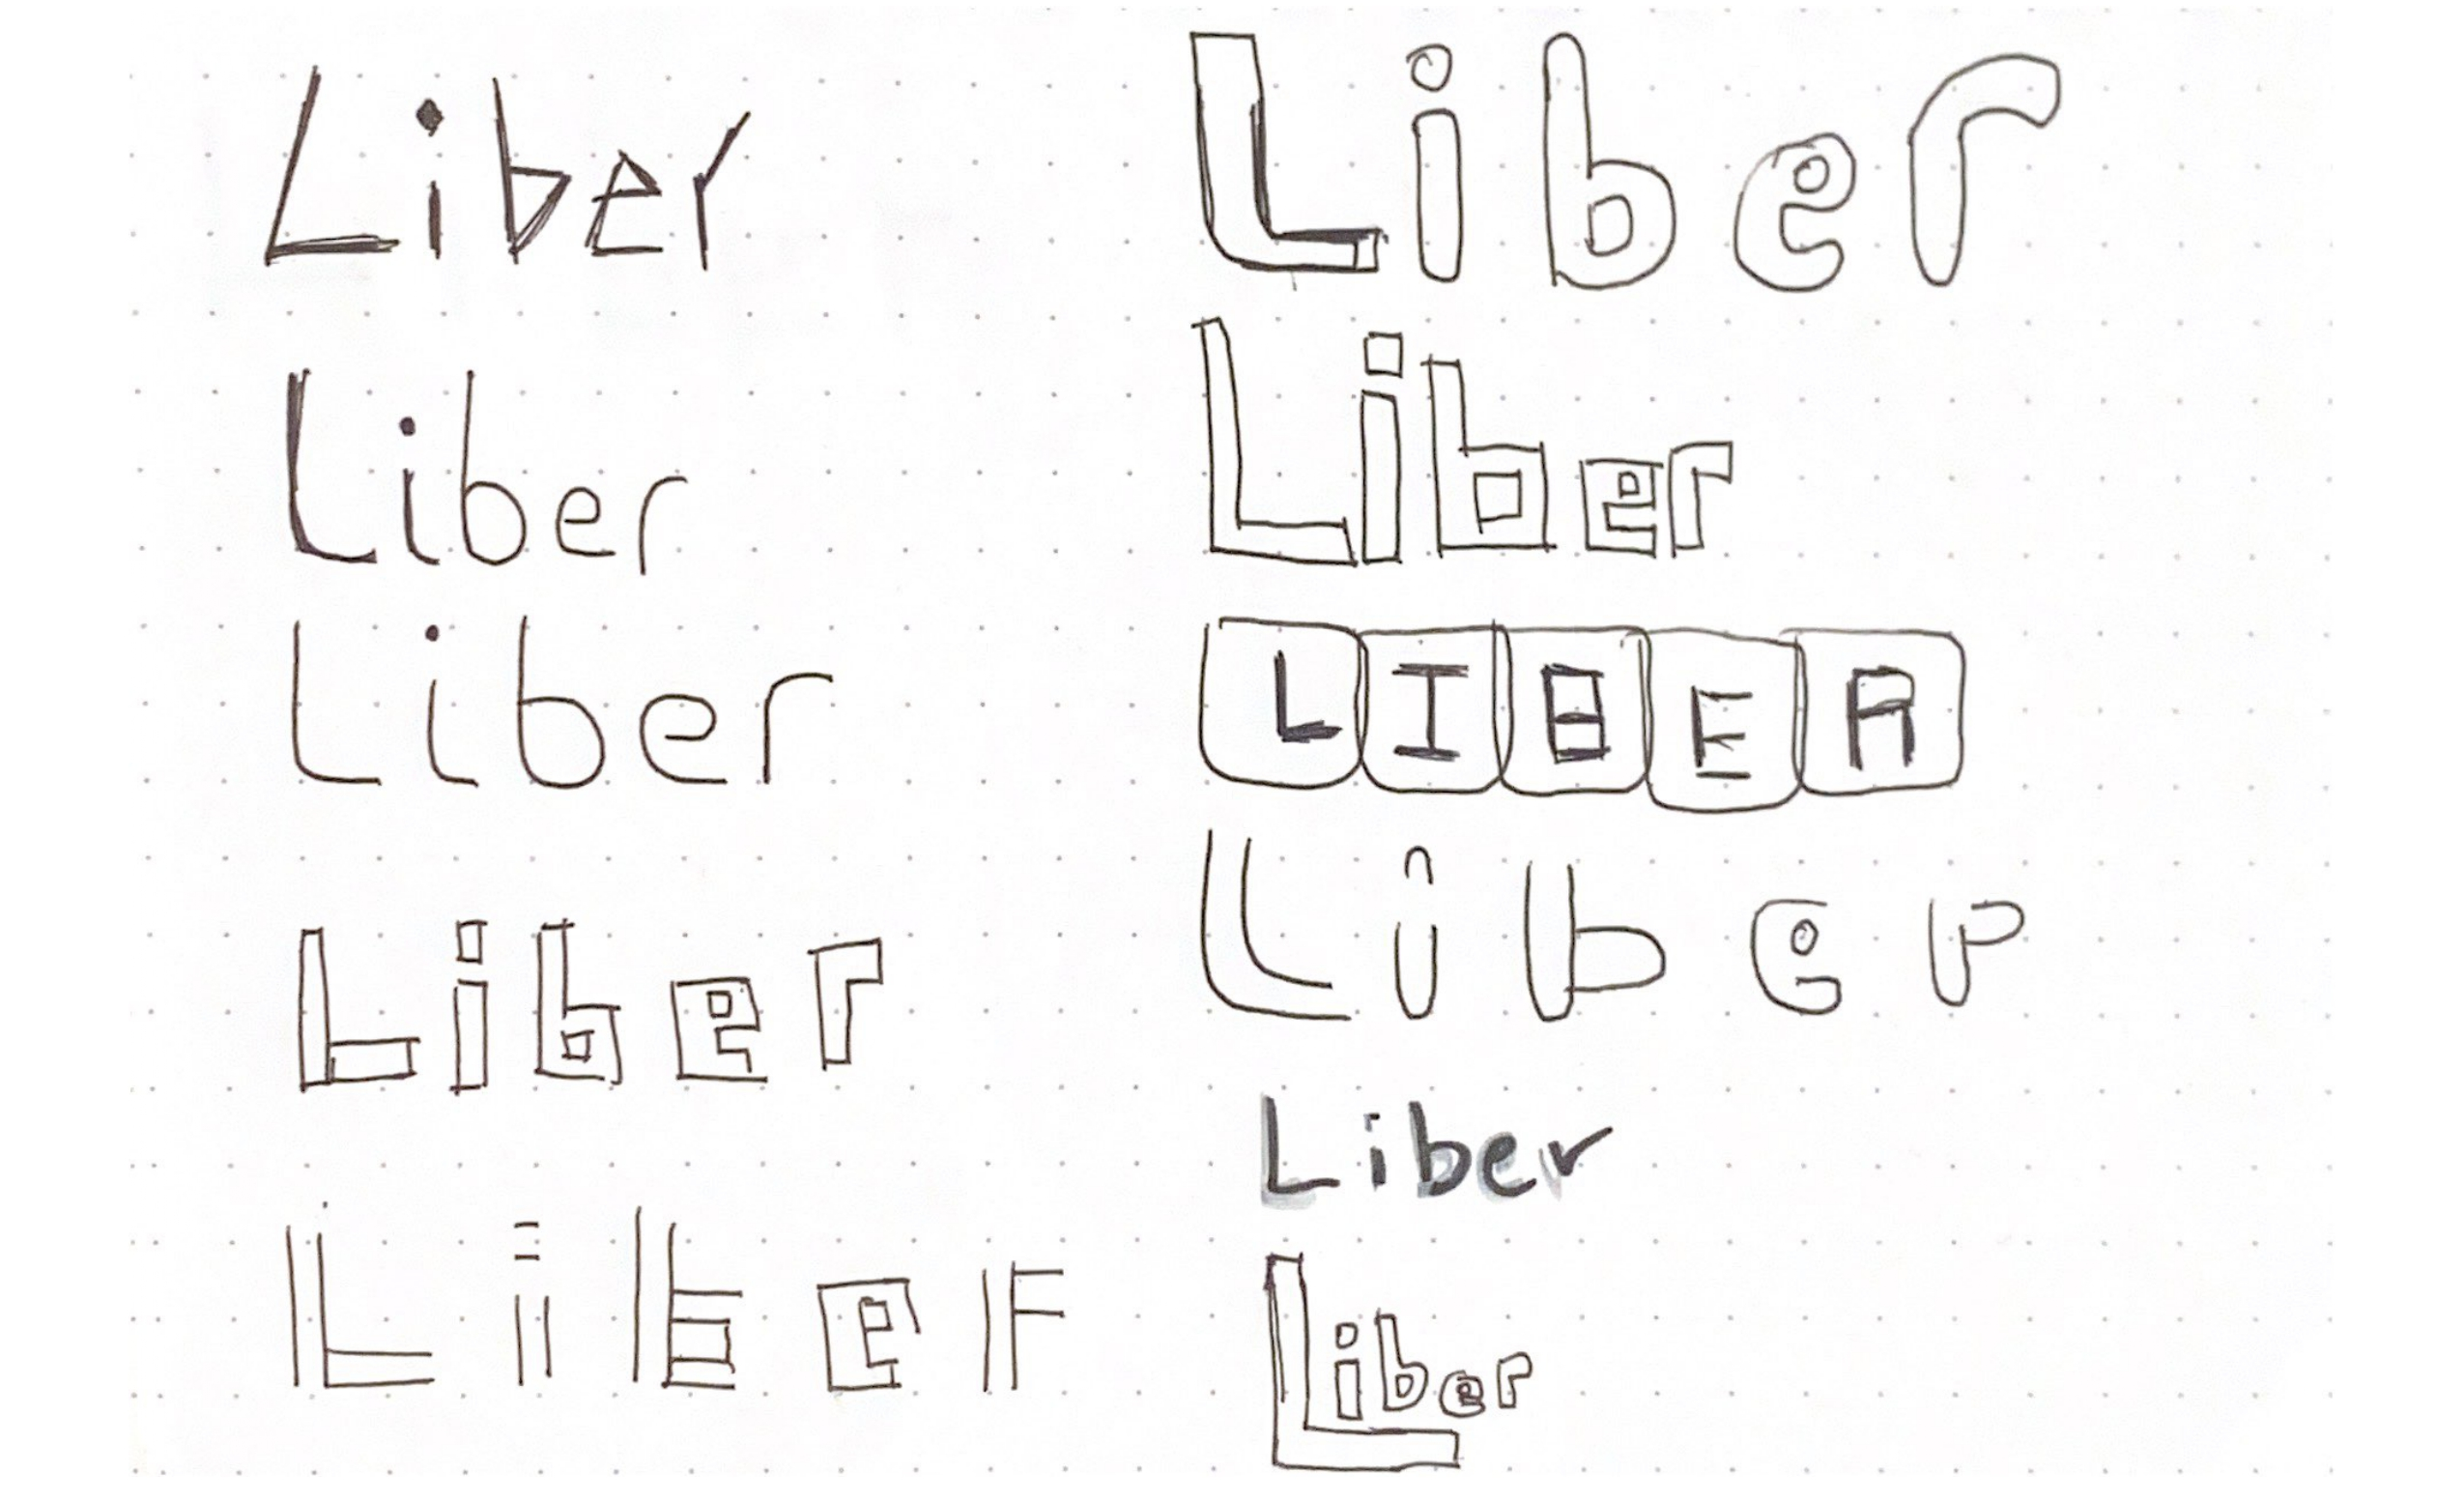 Liber
Liber
Liber
Liber
Liber
Liber
Liber
LIBER
Liber
Liber
Liber